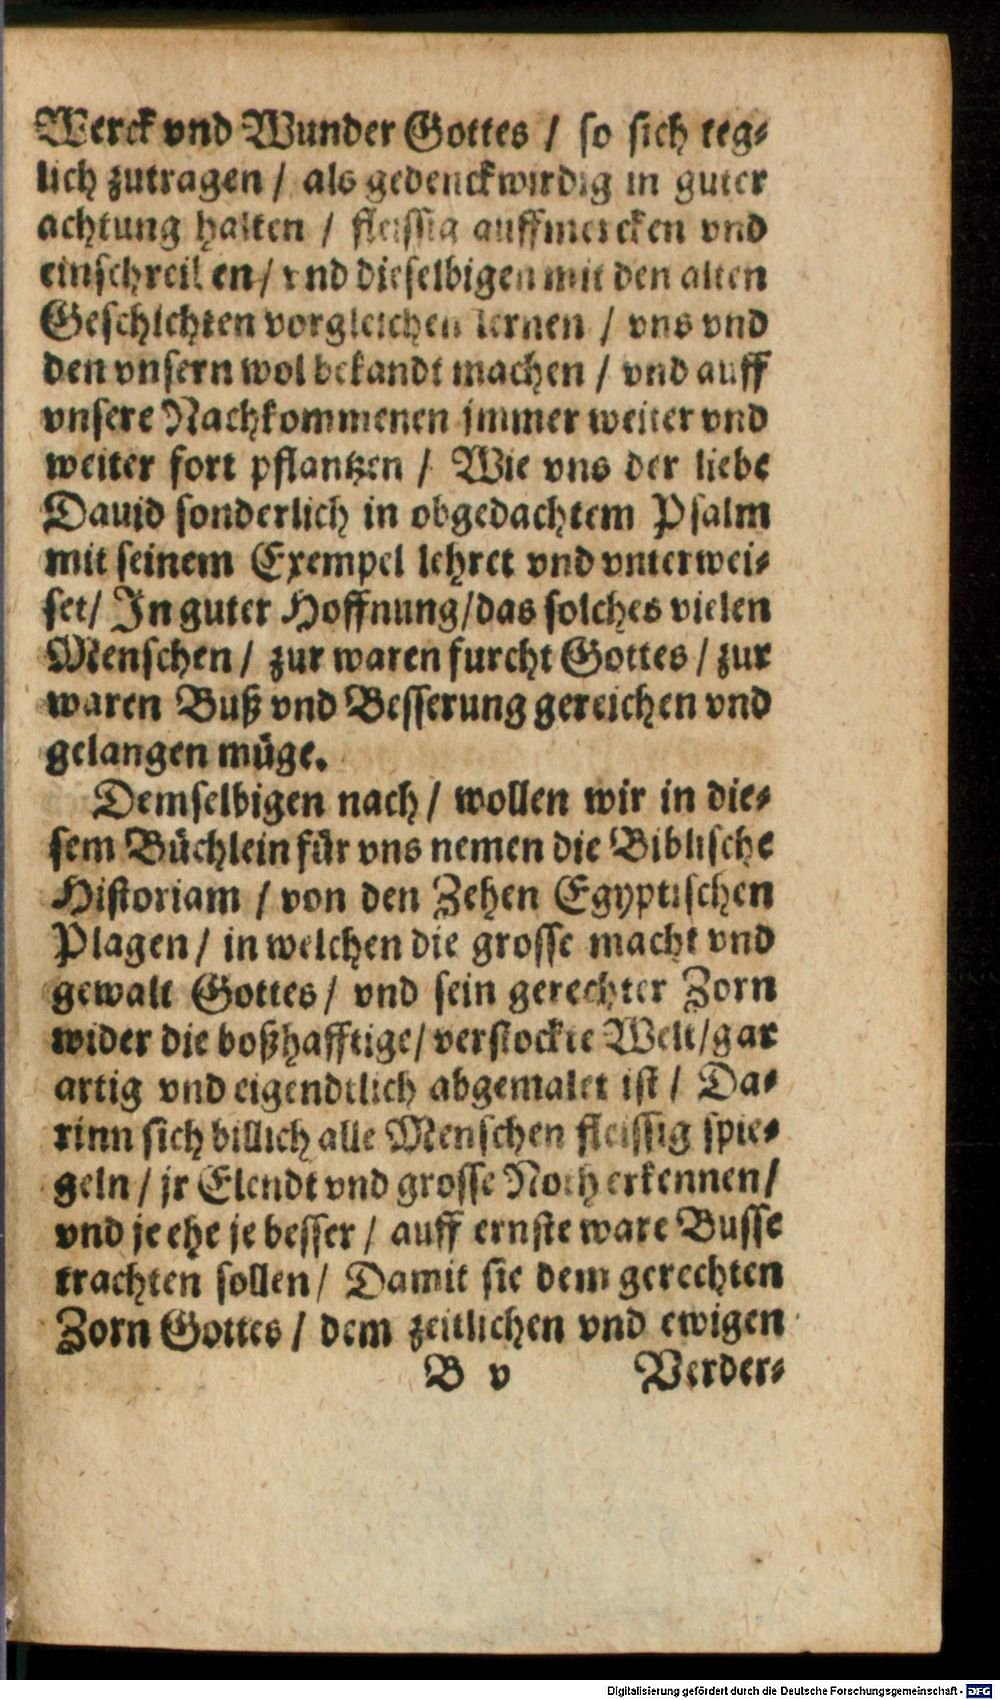 Werck vnd Wunder Gottes / so sich teg⸗
lich zutragen / als gedenckwirdig in guter
achtung halten / fleissig auffmercken vnd
einschreiben / vnd dieselbigen mit den alten
Geschichten vorgleichen lernen / vns vnd
den vnsern wol bekandt machen / vnd auff
vnsere Nachkommenen jmmer weiter vnd
weiter fort pflantzen / Wie vns der liebe
Dauid sonderlich in obgedachtem Psalm
mit seinem Exempel lehret vnd vnterwei⸗
set / In guter Hoffnung / das solches vielen
Menschen / zur waren furcht Gottes / zur
waren Buß vnd Besserung gereichen vnd
gelangen müge.
Demselbigen nach / wollen wir in die⸗
sem Büchlein für vns nemen die Biblische
Historiam / von den Zehen Egyptischen
Plagen / in welchen die grosse macht vnd
gewalt Gottes / vnd sein gerechter Zorn
wider die boßhafftige / verstockte Welt / gar
artig vnd eigendtlich abgemalet ist / Da⸗
rinn sich billich alle Menschen fleissig spie⸗
geln / jr Elendt vnd grosse Noth erkennen /
vnd je ehe je besser / auff ernste ware Busse
trachten sollen / Damit sie dem gerechten
Zorn Gottes / dem zeitlichen vnd ewigen
B v Verder⸗
Digitalisierung gefördert durch die Deutsche Forschungsgemeinschaft - DFG